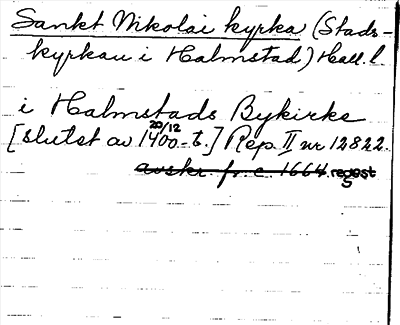 Sankt Nikolai kyrka (Stads-
kyrkan i Halmstad) Hall. l.
i Halmstads Bykirke
20/12
[slutet av 1400-t.] Rep. II nr 12822.
avskr. fr. c. 1664. regest